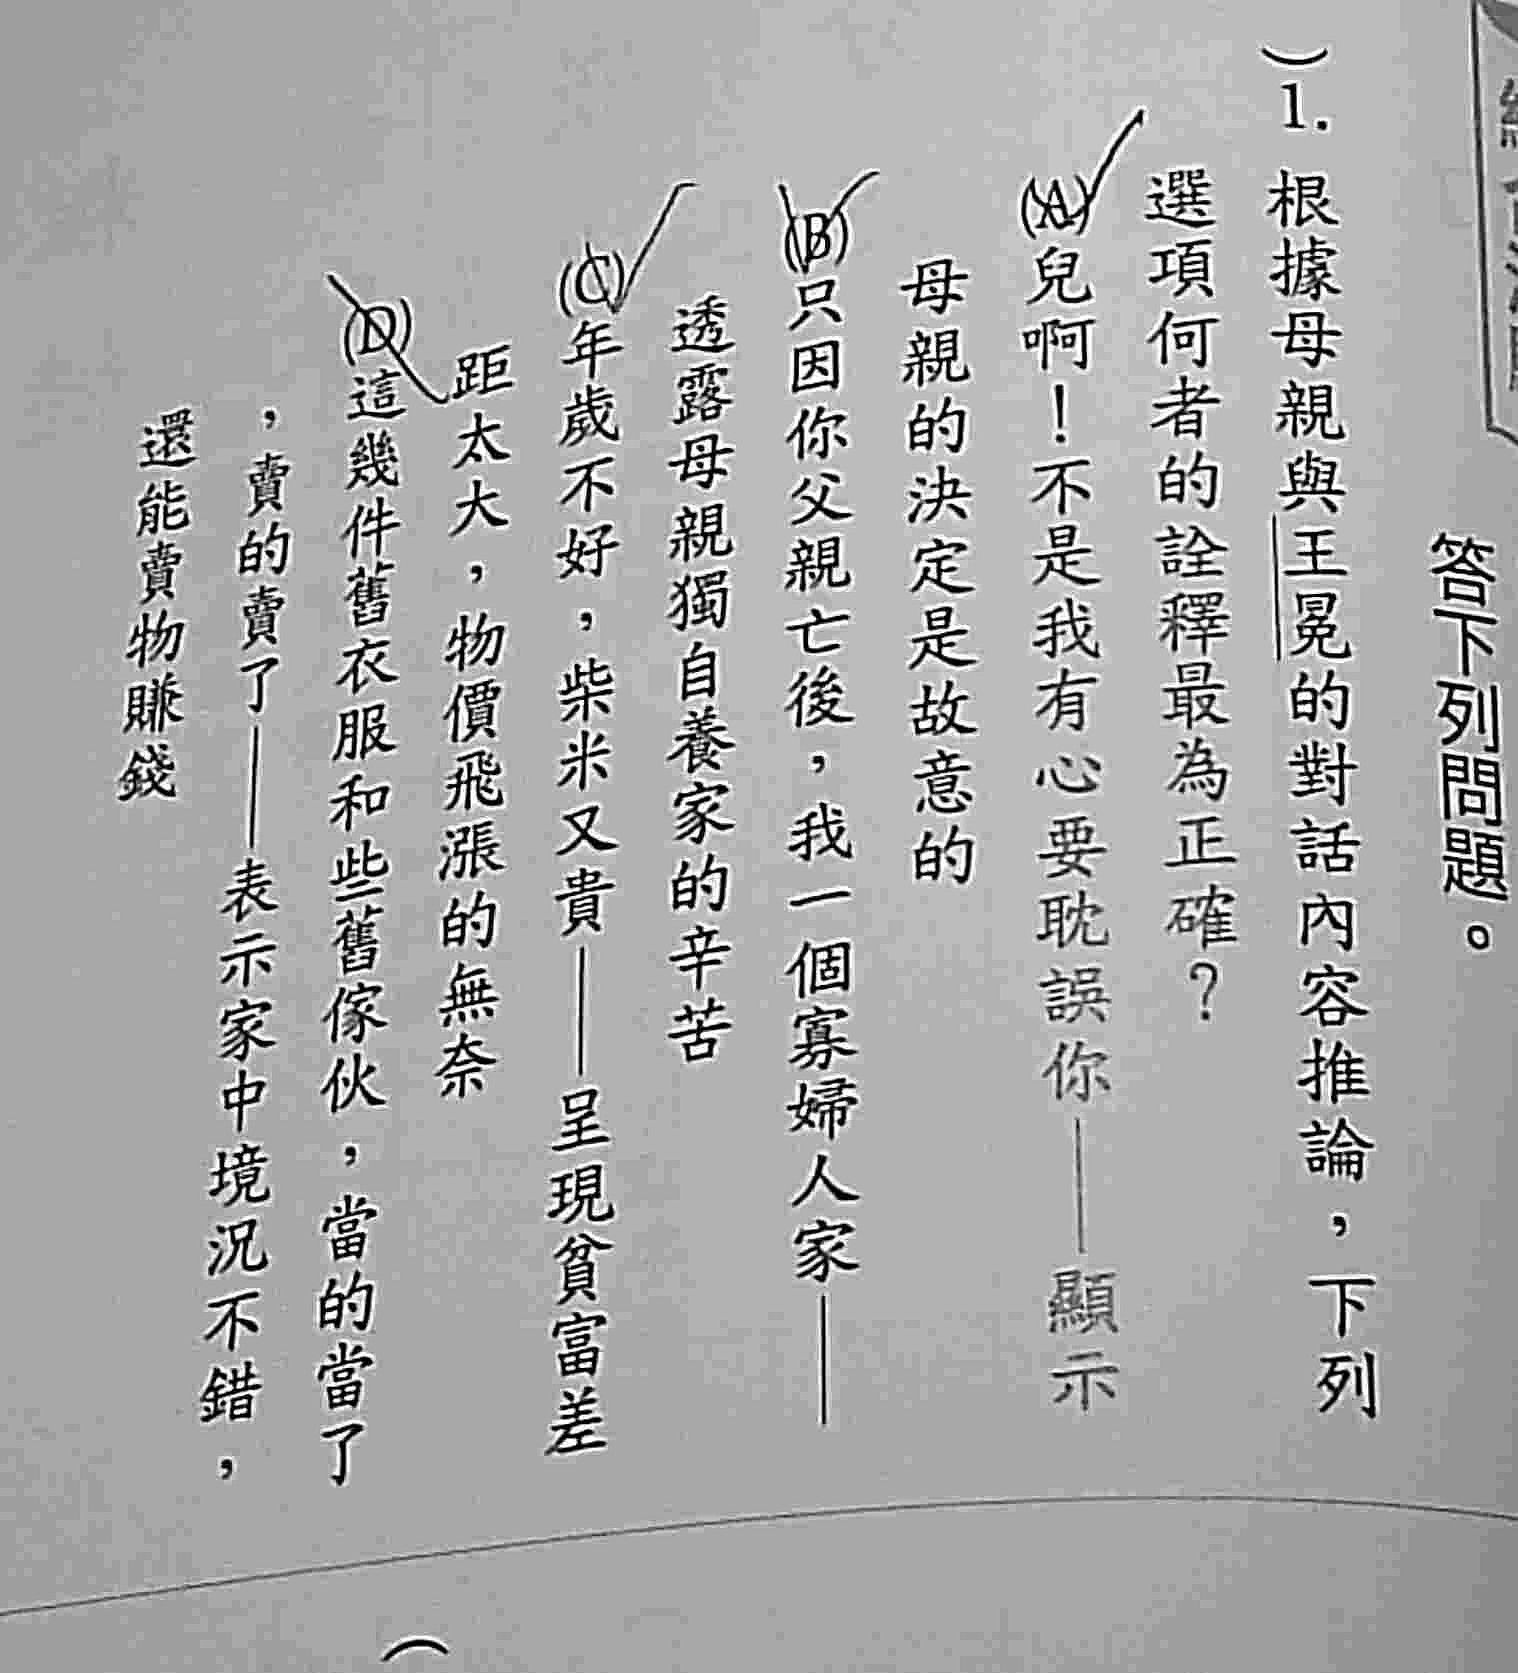 答下列問題。
)1.根據母親與王冕的對話內容推論,下列
選項何者的詮釋最為正確?
(A)兒啊!不是我有心要耽誤你——顯示
母親的決定是故意的
(B)只因你父親亡後,我一個寡婦人家——
透露母親獨自養家的辛苦
(C)年歲不好,柴米又貴——呈現貧富差
距太大,物價飛漲的無奈
(D)這幾件舊衣服和些舊傢伙,當的當了
,賣的賣了——表示家中境況不錯,
還能賣物賺錢
(